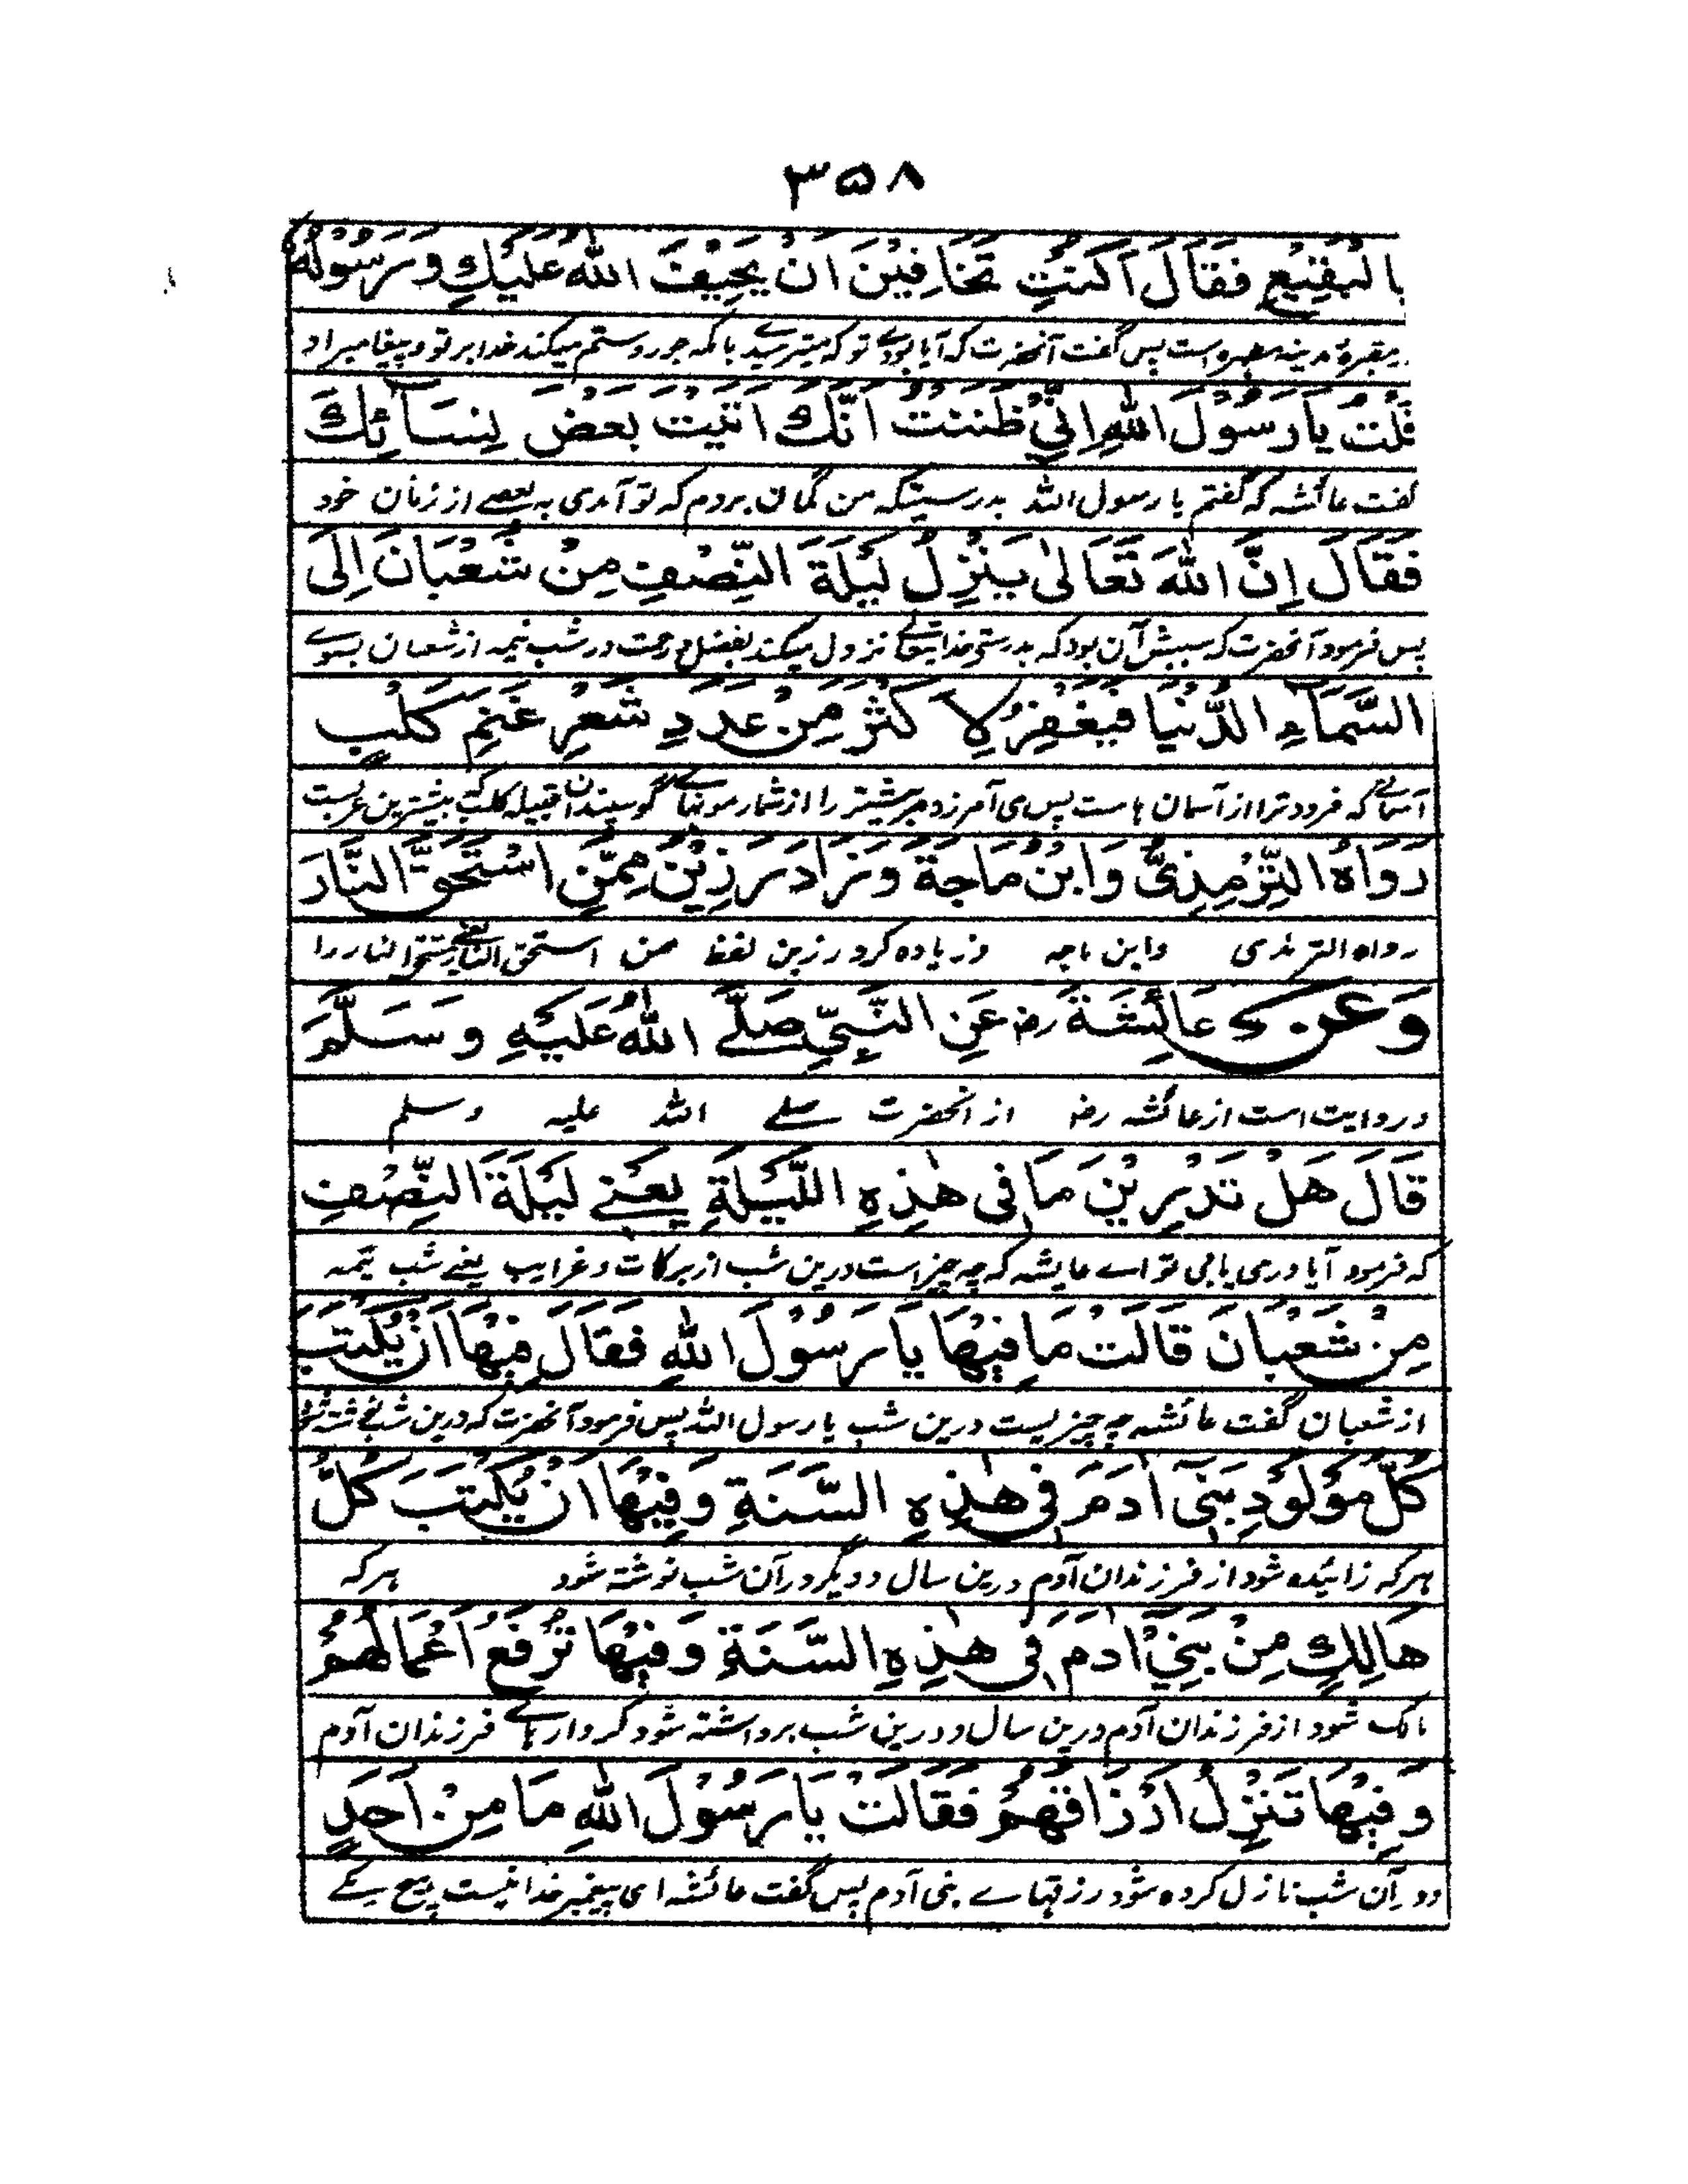 ۳۵۸
بِالْبَقِيْعِ فَقَالَ اَكُنْتِ تَخَافِيْنَ اَنْ يَّحِيْفَ اللهُ عَلَيْكِ وَرَسُوْلُهٗ
مقبرۀ مدینه مطهره است پس گفت آنحضرت که آیا بودی تو که میترسید باکه جور و ستم میکند خدا بر تو و پیغامبر او
قُلْتُ يَا رَسُوْلَ اللهِ اِنِّيْ ظَنَنْتُ اَنَّكَ اَتَيْتَ بَعْضَ نِسَآئِكَ
گفت عائشه که گفتم یا رسول الله بدرستیکه من گمان بردم که تو آمدی به بعضے از زنان خود
فَقَالَ اِنَّ اللهَ تَعَالٰى يَنْزِلُ لَيْلَةَ النِّصْفِ مِنْ شَعْبَانَ اِلَى
پس فرمود آنحضرت که سببش آن بود که بدرستی خدایتعالے نزول میکند بفضل و رحمت در شب نیمه از شعبان بسوے
السَّمَآءِ الدُّنْيَا فَيَغْفِرُ لِاَكْثَرَ مِنْ عَدَدِ شَعْرِ غَنَمِ كَلْبٍ
آسمانے که فرود تر از آسمان ها ست پس می آمرزد مر بیشتر را از شمار مویهاے گوسپندان قبیله کلب که بیشترین عرب ست
رَوَاهُ التِّرْمِذِيُّ وَابْنُ مَاجَةَ وَزَادَ رَزِيْنٌ مِمَّنِ اسْتَحَقَّ النَّارَ
رواه الترمذی وابن ماجه وزیاده کرد رزین لفظ ممن استحق النار یعنے مستحق النار را
وَعَنْ عَائِشَةَ رض عَنِ النَّبِيِّ صَلَّے اللهُ عَلَيْهِ وَسَلَّمَ
و روایت است از عائشه رض از آنحضرت صلے الله علیه وسلم
قَالَ هَلْ تَدْرِيْنَ مَا فِي هٰذِهِ اللَّيْلَةِ يَعْنِے لَيْلَةَ النِّصْفِ
که فرمود آیا دری یابی تو اے عایشه که چه چیز است درین شب از برکات و غرایب یعنے شب نیمه
مِنْ شَعْبَانَ قَالَتْ مَا فِيْهَا يَا رَسُوْلَ اللهِ فَقَالَ فِيْهَا اَنْ يُّكْتَبَ
از شعبان گفت عائشه چه چیز یست درین شب یا رسول الله پس فرمود آنحضرت که درین شب نوشته شود
كُلُّ مَوْلُوْدِ بَنِيْ اٰدَمَ فِيْ هٰذِهِ السَّنَةِ وَفِيْهَا اَنْ يُّكْتَبَ كُلُّ
هر که زائیده شود از فرزندان آدم درین سال و دیگر در آن شب نوشته شود هر که
هَالِكٍ مِنْ بَنِيْ اٰدَمَ فِيْ هٰذِهِ السَّنَةِ وَفِيْهَا تُرْفَعُ اَعْمَالُهُمْ
هالک شود از فرزندان آدم درین سال و درین شب برداشته شود کردارهاے فرزندان آدم
وَفِيْهَا تَنْزِلُ اَرْزَاقُهُمْ فَقَالَتْ يَا رَسُوْلَ اللهِ مَا مِنْ اَحَدٍ
و در آن شب نازل کرده شود رزقهاے بنی آدم پس گفت عائشه ای پیغمبر خدا نیست هیچ یکے